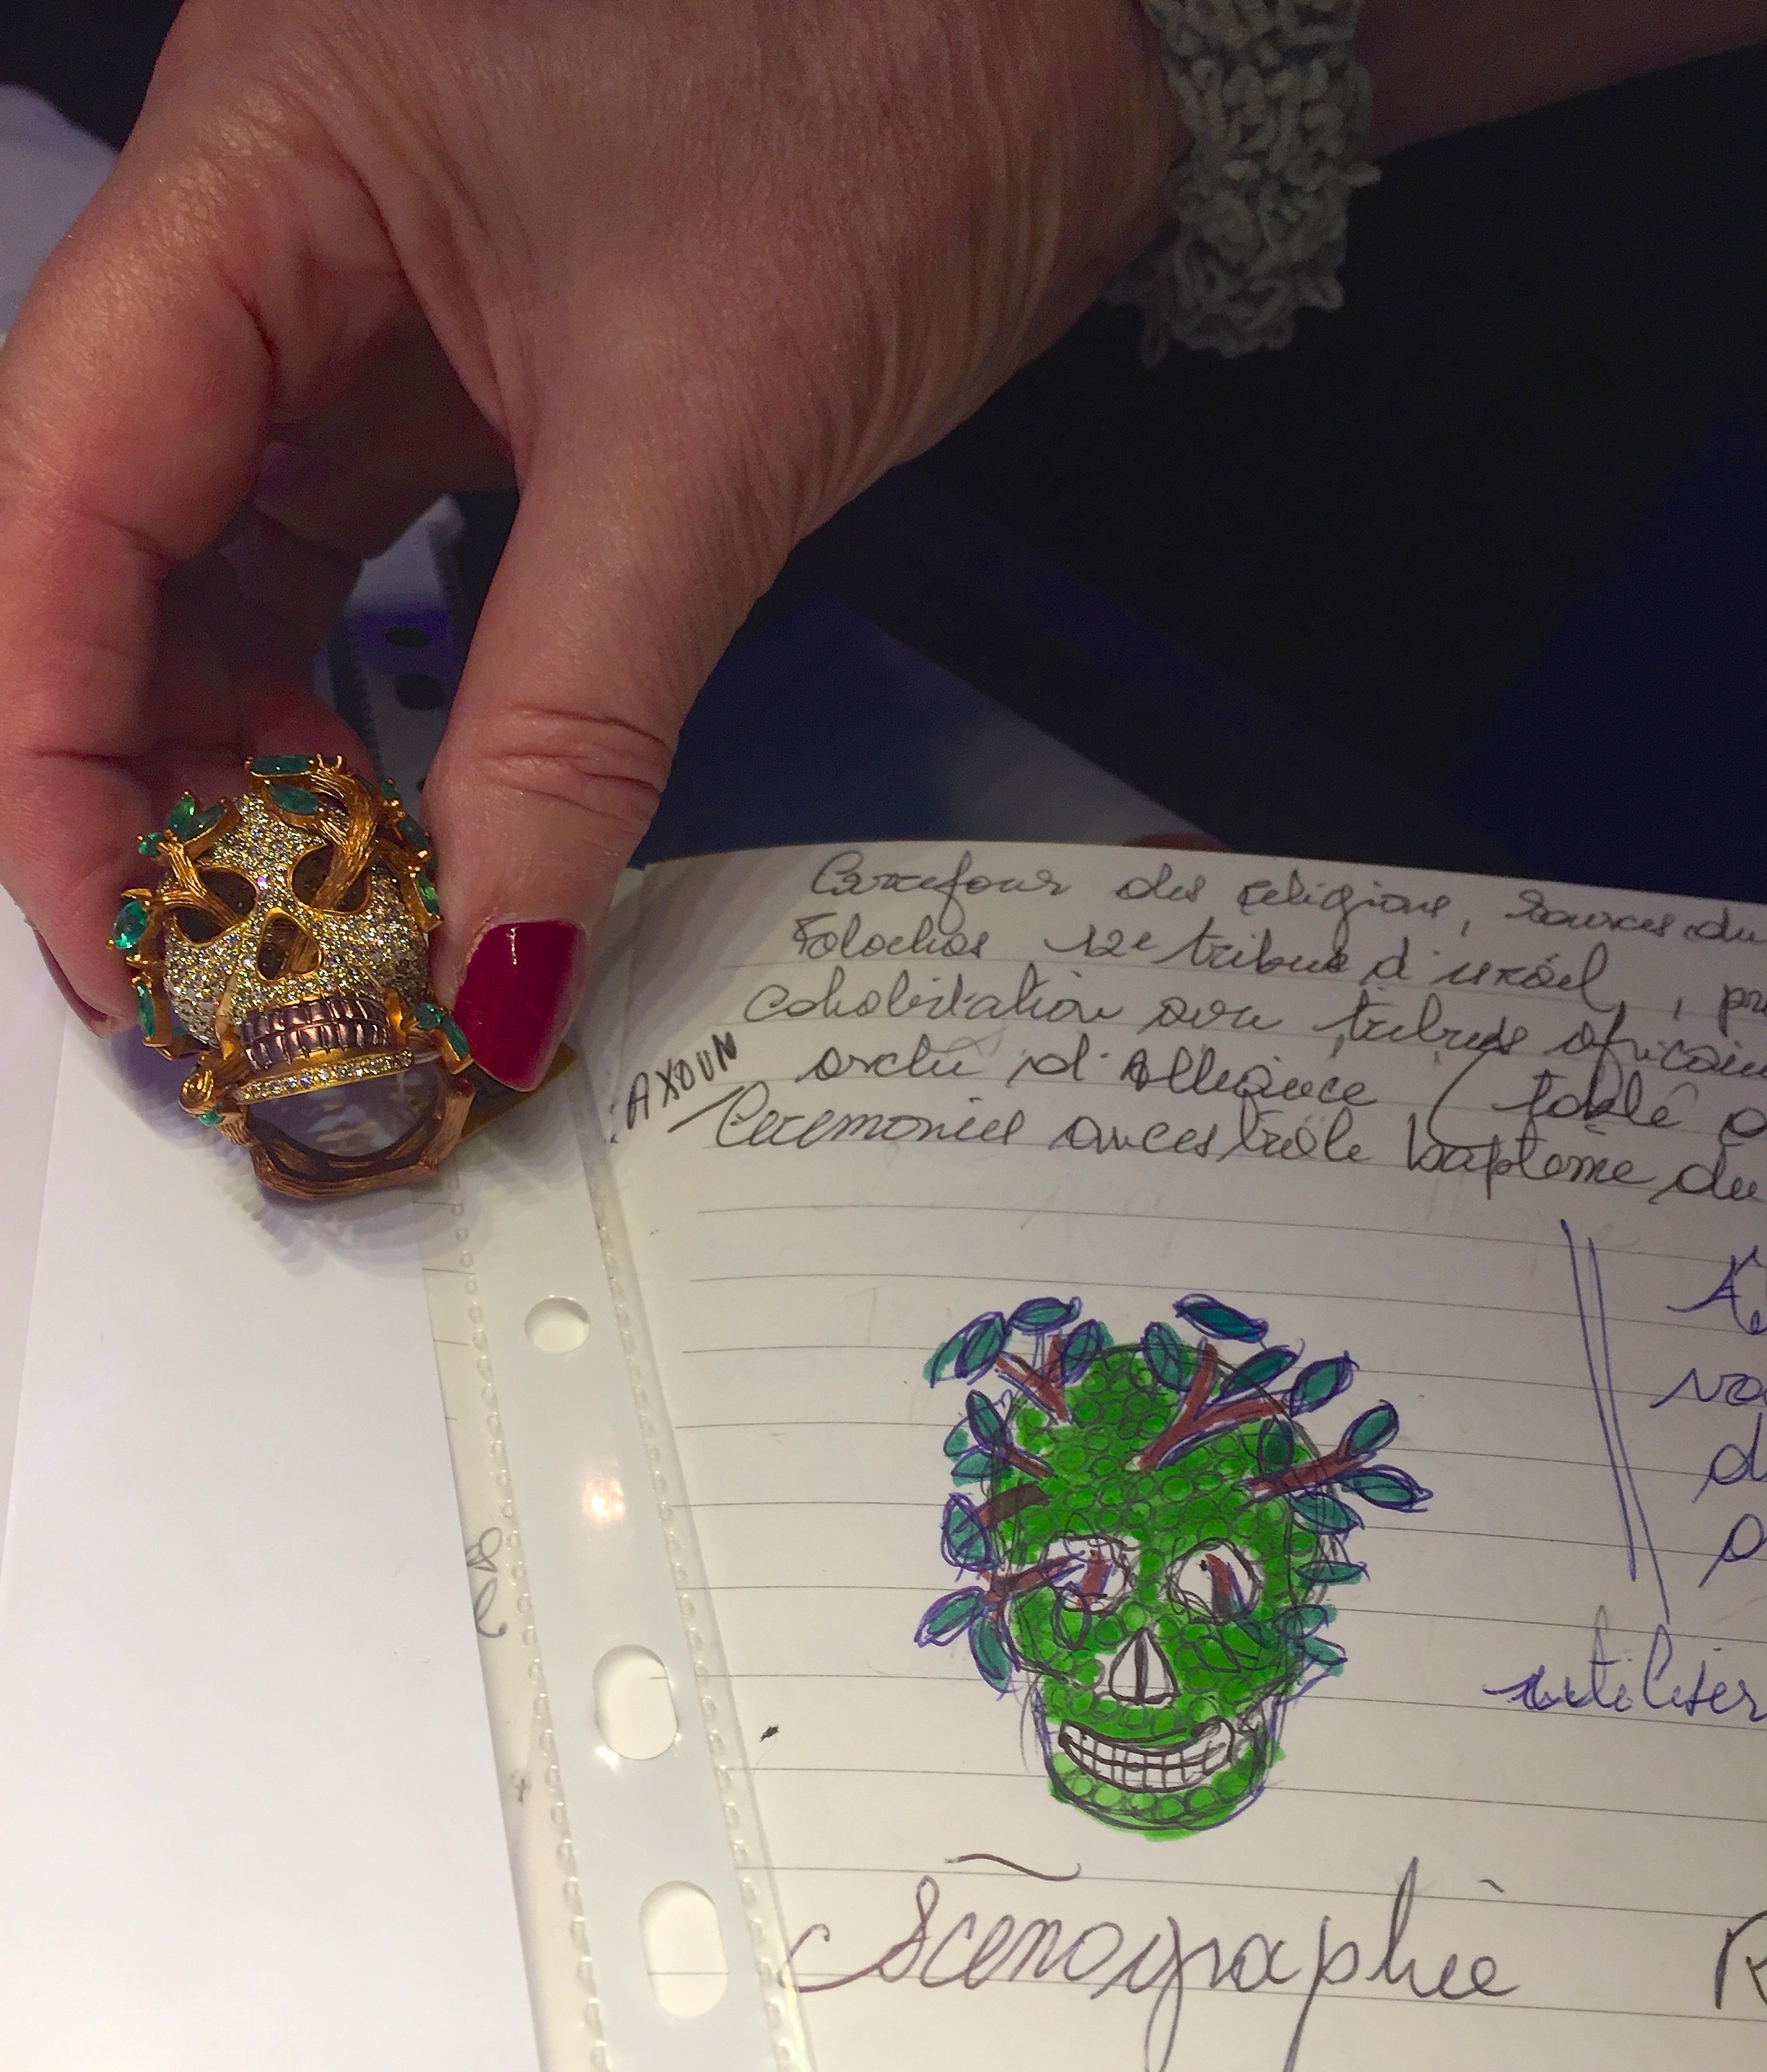 Carrefour des religions, sources du
Falachas 12e tribue d'israël, , pr
cohabitation avec tribues africain
: AXOUN arche d'Alliance ( table
Ceremonies ancestrale baptème du
utiliser
Scènographie R